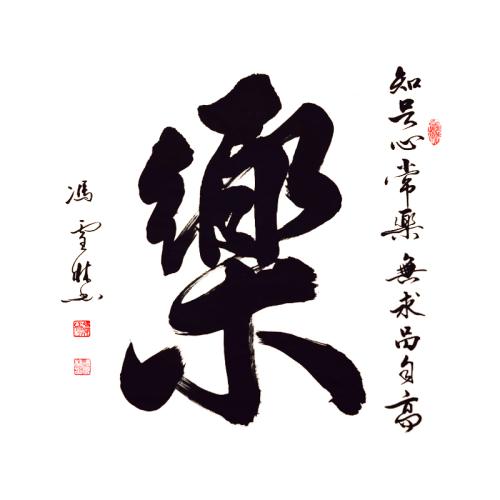 知足心常樂 無求品自高
樂
馮雪林書